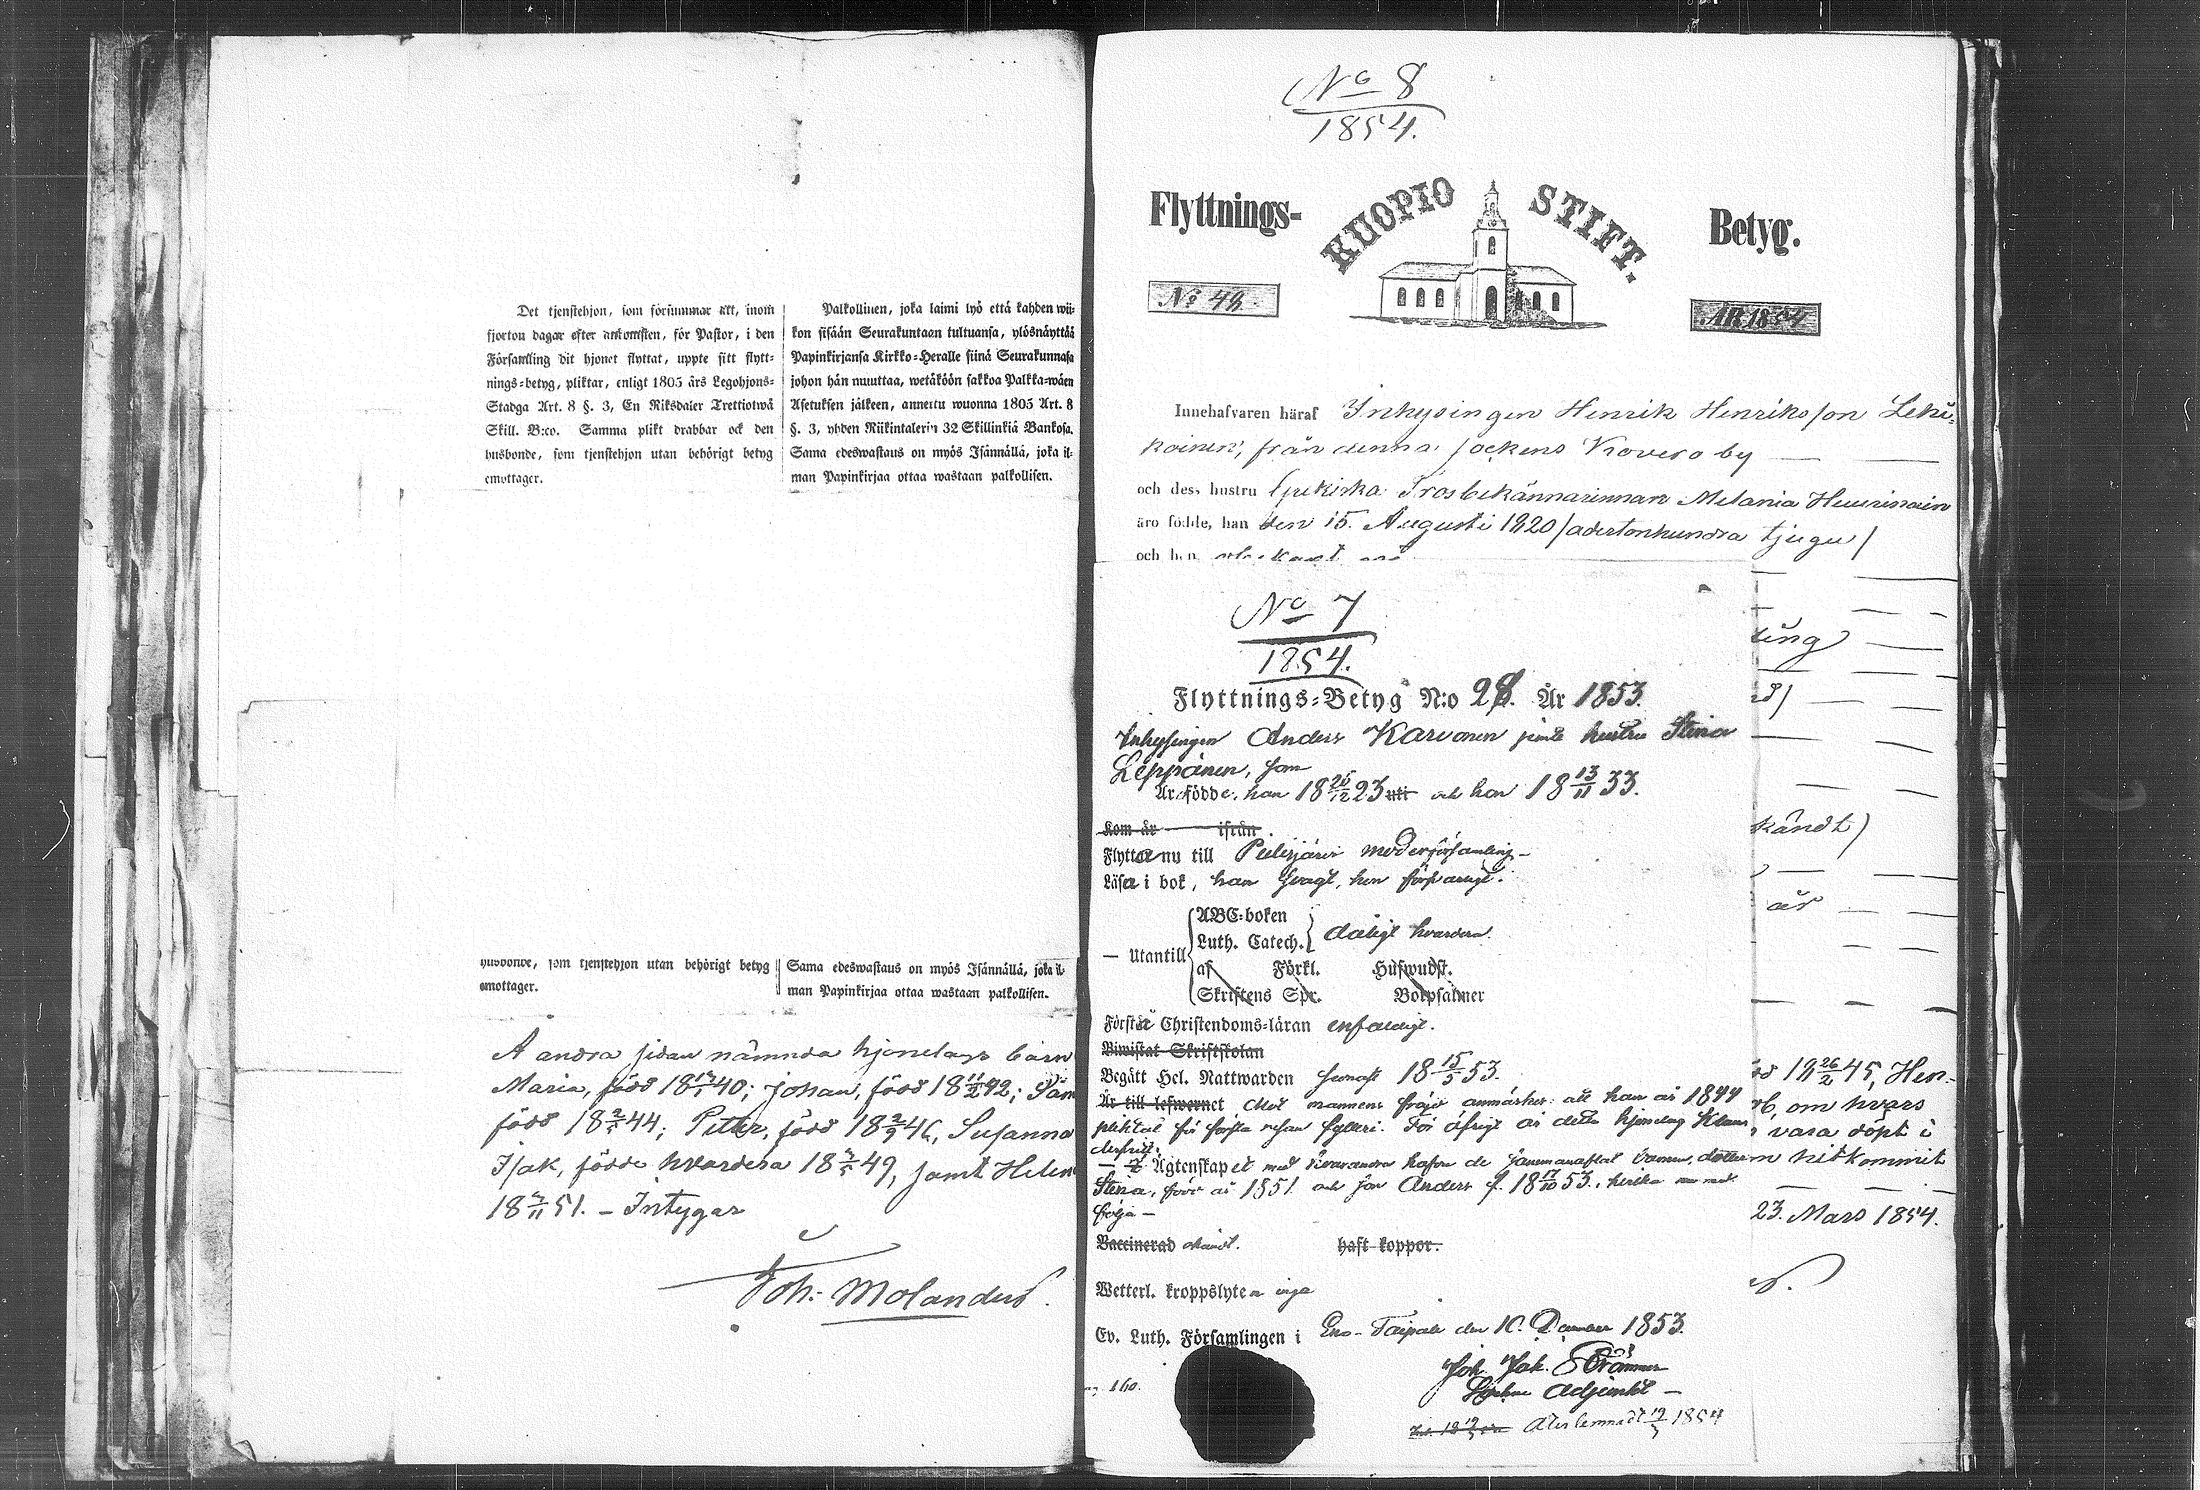 Det tjenstehjon, som försummar att, inom
fjorton dagar efter ankomsten, för Pastor, i den
Församling dit hjonet flyttat, uppte sitt flytt-
nings-betyg, pliktar, enligt 1805 års Legohjons-
Stadga Art. 8 §. 3, En Riksdaler Trettiotwå
Skill. B:co. Samma plikt drabbar ock den
husbonde, som tjenstehjon utan behörigt betyg
emottager.
Palkollinen, joka laimi lyö että kahden wii-
kon sisään Seurakuntaan tultuansa, ylösnäyttää
Papinkirjansa Kirkko-Herralle siinä Seurakunnasa
johon hän muuttaa, wetäköön sakkoa Palkka-wäen
Asetuksen jälkeen, annettu wuonna 1805 Art. 8
§. 3, yhden Riikintalerin 32 Skillinkiä Bankosa.
Sama edeswastaus on myös Isännällä, joka il-
man Papinkirjaa ottaa wastaan palkollisen.
husbonde, som tjenstehjon utan behörigt betyg
emottager.
Sama edeswastaus on myös Isännällä, joka il-
man Papinkirjaa ottaa wastaan palkollisen.
Å andra sidan nämnda hjonelags barn
Maria, född 18 40; Johan, född 18 11/2 42;
född 18 2/5 44; Petter, född 18 2/9 46, Susanna
Isak, födde hvardera 18 49, samt Helen
18 51. – Intygar
Joh: Molander.
No 8
1854.
Flyttnings- KUOPIO STIFT. Betyg.
No 48.
ÅR 1854
Innehafvaren häraf Inhysingen Henrik Henriksson Leki-
koinen, från denna sockens Kovero by
och dess hustru Grekiska Trosbekännarinnan Melania Huurinain
äro födde, han den 15. Augusti 1820 /adertonhundra tjugu/
och hon
No 7
1854.
Flyttnings-Betyg N:o 28. År 1853.
Inhysingen Anders Karvonen jemte hustru Stina
Leppänen, som
Är födde, han 18 25/12 23 och hon 18 13/11 33.
Kom år ifrån
Flytta nu till Pielisjärvi moderförsamling –
Läsa i bok, han svagt, hon försvarligt.
– Utantill
ABC-boken
Luth. Catech. dåligt hvardera.
af Förkl. Huswudst.
Skriftens Spr. Botpsalmer
Förstå Christendoms-läran enfaldigt.
Biwistat Skriftskolan
Begått Hel. Nattwarden senast 18 15/5 53.
Är till lefwernet Med mannens frejd anmärkes: att han år 1844
pliktat för första resan fylleri. För öfrigt är detta hjonelag
derfritt.
– Ägtenskapet med hvarandra hafva de sammanaflat barnen, dottern
Stina, född år 1851 och son Anders f. 18 17/10 53., hvilka nu med
följa –
Vaccinerad okändt. haft koppor.
Wetterl. kroppslyten inga
Ev. Luth. Församlingen i Eno-Taipale den 10. December 1853.
Joh. Jak. Brännare
Adjunkt –
Återlemnadt 19/3 1854
160.
ling
kändt)
år
18 26/2 45, Hen-
om hvars
vara döpt i
hitkommit
23. Mars 1854.